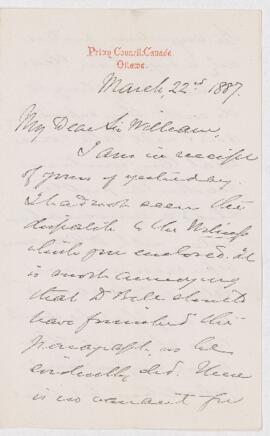 Privy Council, Canada
Ottawa.
March, 22nd 1887.
My Dear Sir William,
I am in receipt
of yours of yesterday.
I had not seen the
despatch to the Witness
which you enclosed. It
is most annoying
that Dr Bell should
have furnished the
paragraph, as he
evidently did. There
is no warrant for